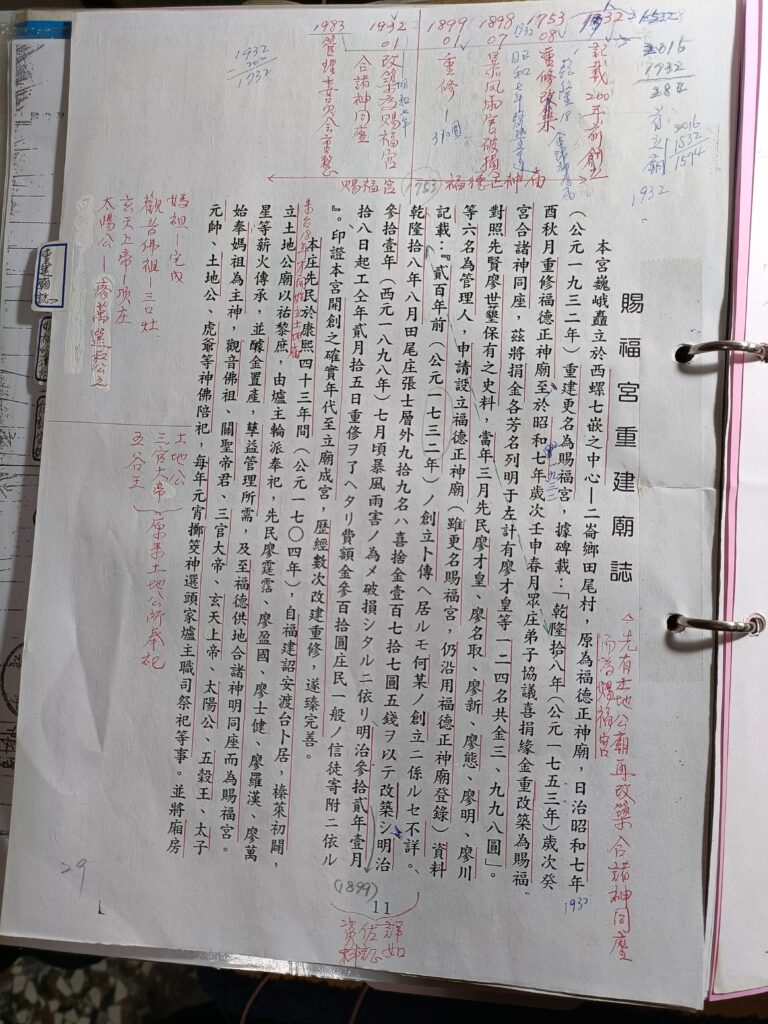 賜福宮重建廟誌
本宮巍峨矗立於西螺七嵌之中心—二崙鄉田尾村，原為福德正神廟，日治昭和七年
（公元一九三二年）重建更名為賜福宮，據碑載：「乾隆拾八年（公元一七五三年）歲次癸
酉秋月重修福德正神廟至於昭和七年歲次壬申春月眾庄弟子協議喜捐緣金重改築為賜福
宮合諸神同座，茲將捐金各芳名列明于左計有廖才皇等一二四名共金三、九九八圓」。
對照先賢廖世壆保有之史料，當年三月先民廖才皇、廖名取、廖新、廖態、廖明、廖川
等六名為管理人，申請設立福德正神廟（雖更名賜福宮，仍沿用福德正神廟登錄）資料
記載：『貳百年前（公元一七三二年）ノ創立ト傳ヘ居ルモ何某ノ創立ニ係ルセ不詳。
乾隆拾八年八月田尾庄張士層外九拾九名ハ喜捨金壹百七拾七圓五錢ヲ以テ改築シ明治
參拾壹年（西元一八九八年）七月頃暴風雨害ノ為メ破損シタルニ依リ明治參拾貳年壹月
拾八日起工仝年貳月拾五日重修ヲ了ヘタリ費額金參百拾圓庄民一般ノ信徒寄附ニ依ル
』。印證本宮開創之確實年代至立廟成宮，歷經數次改建重修，遂臻完善。
本庄先民於康熙四十三年間（公元一七〇四年），自福建詔安渡台卜居，榛萊初闢，
立土地公廟以祐黎庶，由爐主輪派奉祀，先民廖霆霑、廖盈國、廖士健、廖羅漢、廖萬
星等薪火傳承，並醵金置產，孳益管理所需，及至福德供地合諸神明同座而為賜福宮。
始奉媽祖為主神，觀音佛祖、關聖帝君、三官大帝、玄天上帝、太陽公、五穀王、太子
元帥、土地公、虎爺等神佛陪祀，每年元宵擲筊神選頭家爐主職司祭祀等事。並將廂房
11
△先有土地公廟再改築合諸神同座
而為賜福宮
1932
記載200年前創立
1753
08
重修改築
1898
07
暴風雨害破損
1899
01
重修
310圓
1932
01
改築為賜福宮
昭和七年
合諸神同座
1983
管理委員會重整
賜福宮
1753
福德正神廟
2016
1932
1932
200
1732
媽祖—完成
觀音佛祖—三口灶
玄天上帝—頂庄
土地公
三官大帝
五谷王
原本土地公所奉祀
(1899)
詳如
佐証
資料
29